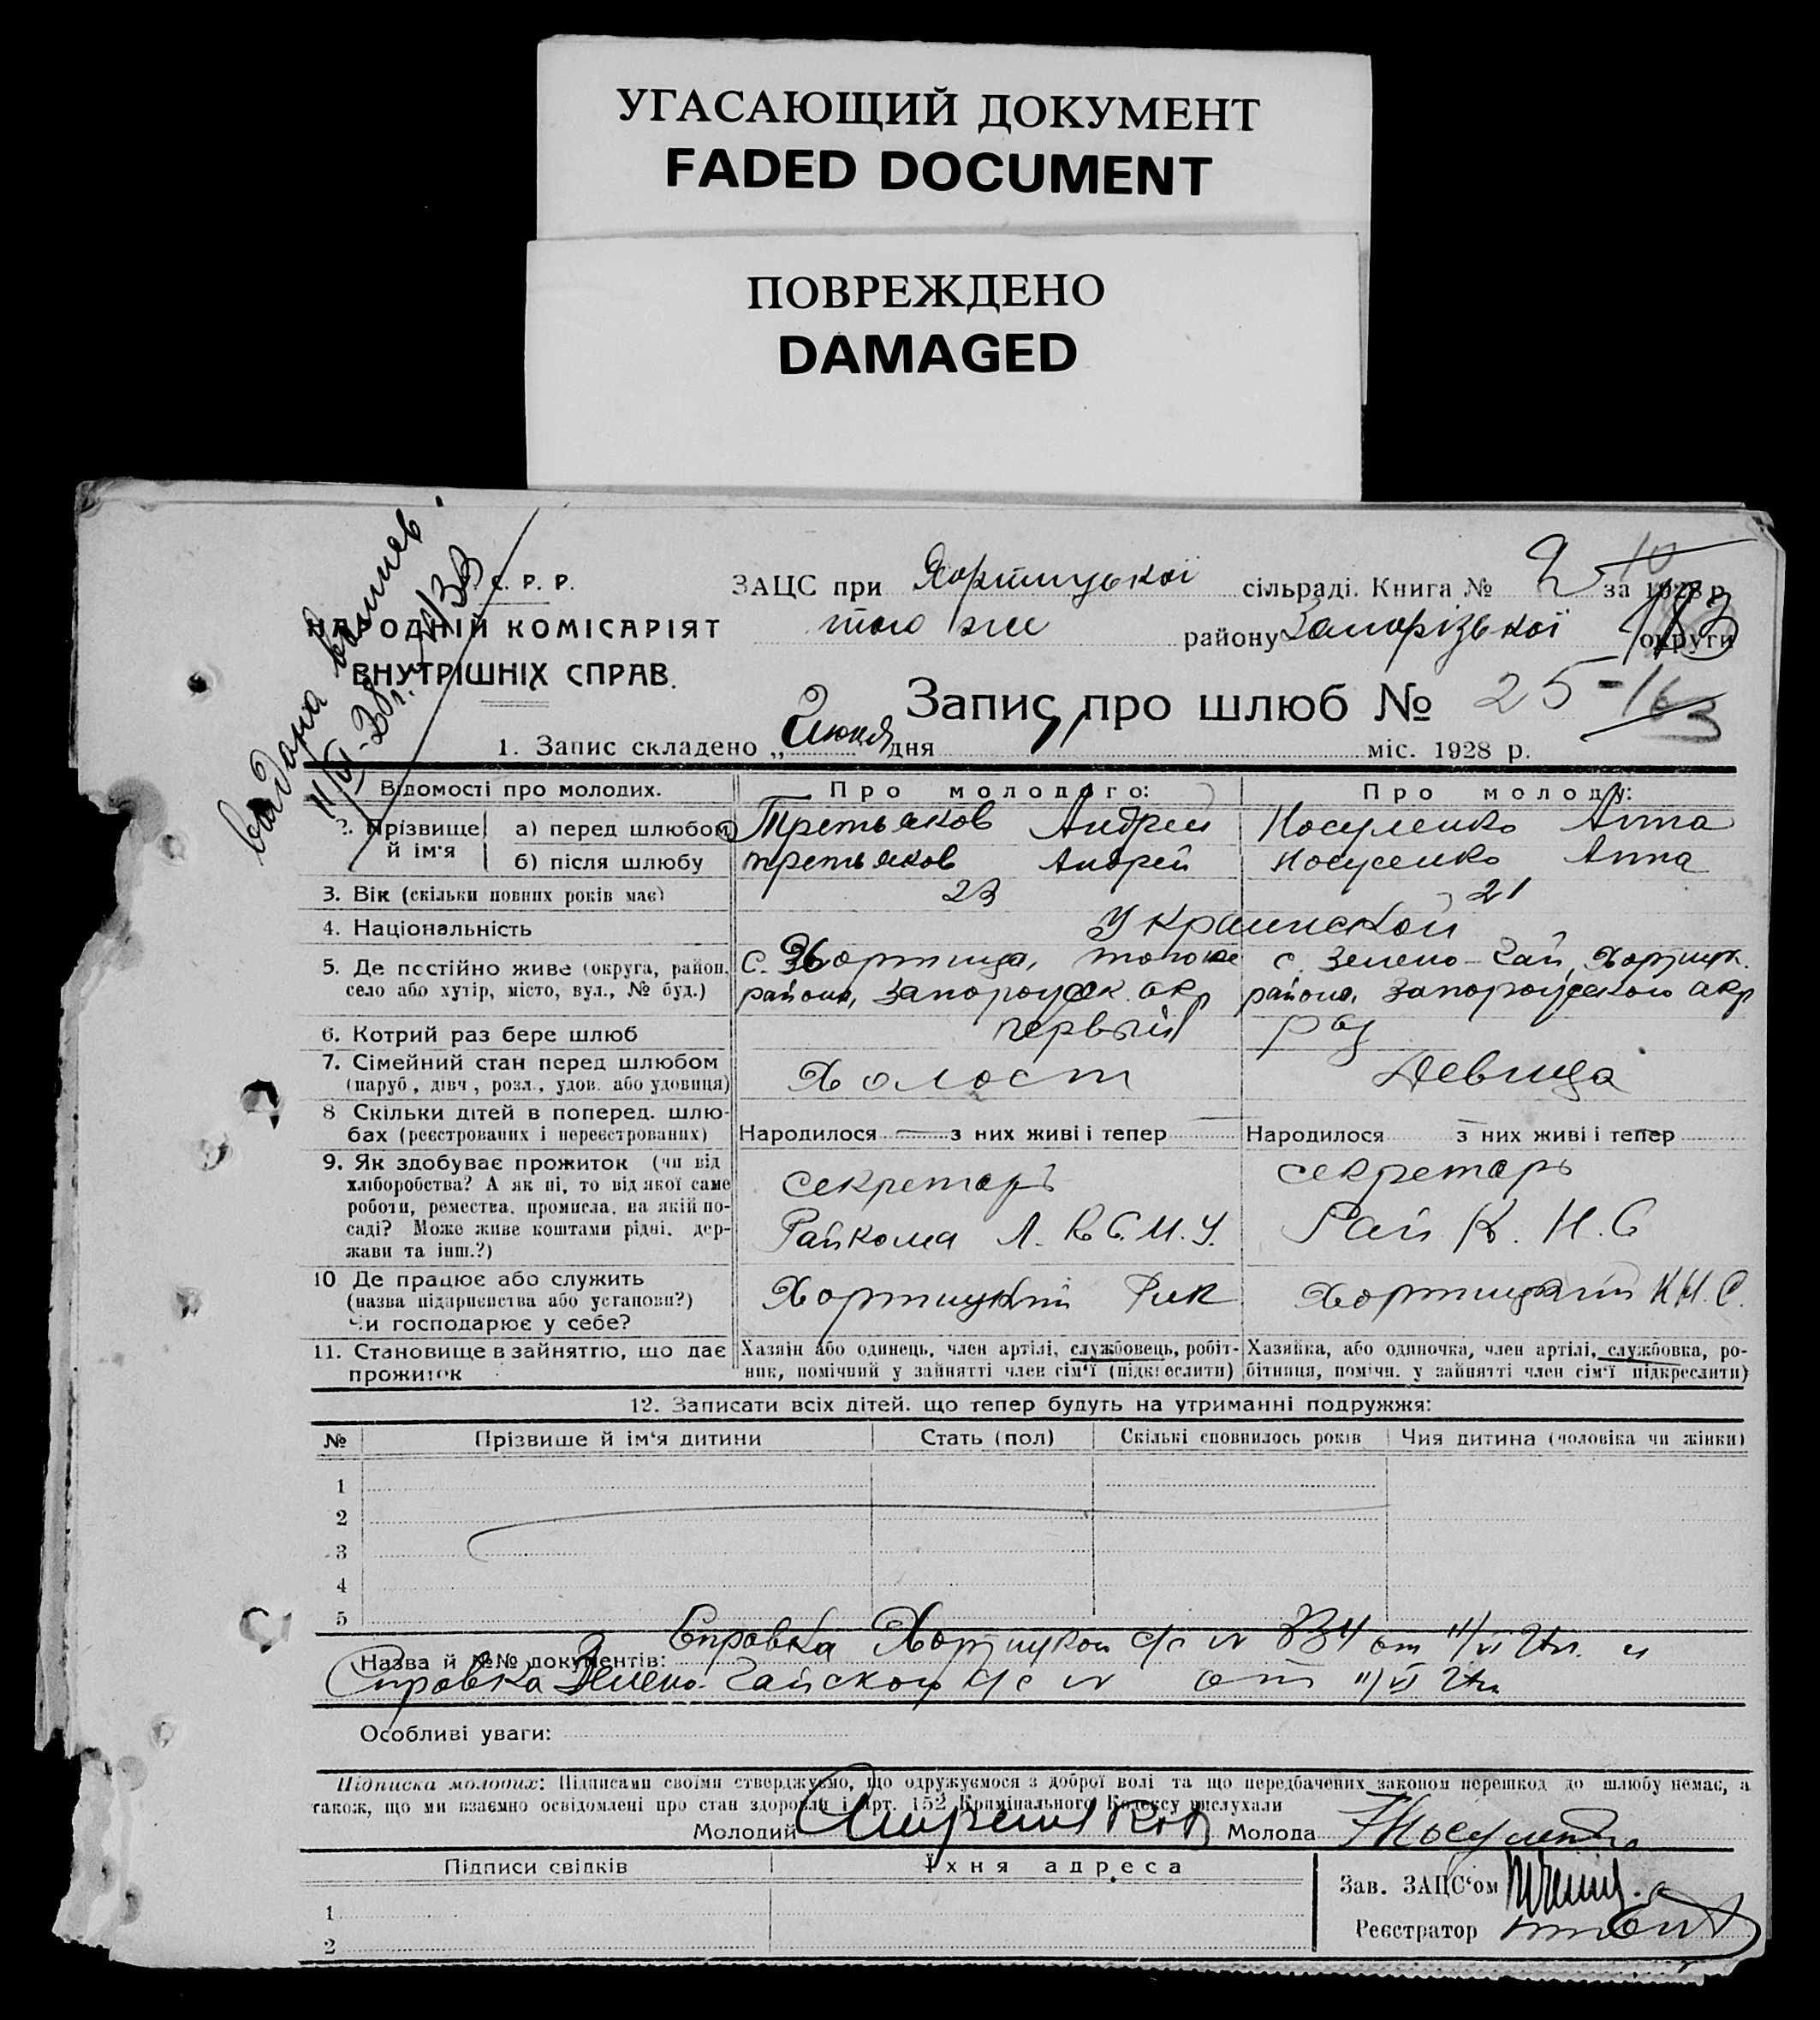 УГАСАЮЩИЙ ДОКУМЕНТ
FADED DOCUMENT
ПОВРЕЖДЕНО
DAMAGED
выдана
С. Р. Р.
НАРОДНІЙ КОМІСАРІЯТ
ВНУТРІШНІХ СПРАВ.
ЗАЦС при Хортицькоі сільраді. Книга № 2 за 1928 р.
того же району Запорізькоі округи
Запис про шлюб № 25
1. Запис складено „ Июня дня 11 міс. 1928 р.
Відомості про молодих. Про молодого: Про молоду:
2. Прізвище й ім'я а) перед шлюбом Третьяков Андрей Носуленко Анна
б) після шлюбу Третьяков Андрей Носуленко Анна
3. Вік (скільки повних років має) 23 21
4. Національність Украинской
5. Де постійно живе (округа, район, с. Хортица, того же с. Зелено-Гай, Хортицк.
село або хутір, місто, вул., № буд.) района, Запорожск. окр района, Запорожского окр
6. Котрий раз бере шлюб первый раз
7. Сімейний стан перед шлюбом
(паруб., дівч., розл., удов. або удовиця) Холост Девица
8 Скільки дітей в поперед. шлю-
бах (реєстрованих і нереєстрованих) Народилося — з них живі і тепер Народилося з них живі і тепер
9. Як здобуває прожиток (чи від
хліборобства? А як ні, то від якої саме секретарь секретарь
роботи, ремества, промисла, на якій по-
саді? Може живе коштами рідні, дер- Райкома Л.К.С.М.У. Рай К.Н.С
жави та інш.?)
10 Де працює або служить
(назва підприємства або установи?) Хортицкий Рик Хортицкий К.Н.С.
Чи господарює у себе?
11. Становище в зайняттю, що дає Хазяїн або одинець, член артілі, службовець, робіт- Хазяйка, або одиночка, член артілі, службовка, ро-
прожиток ник, помічний у зайнятті член сім'ї (підкреслити) бітниця, помічн. у зайнятті член сім'ї підкреслити)
12. Записати всіх дітей, що тепер будуть на утриманні подружжя:
№ Прізвище й ім'я дитини Стать (пол) Скількі сповнилось років Чия дитина (чоловіка чи жінки)
1
2
3
4
5
Справка Хортицкой с/с № от 11/VI и
Назва й №№ документів:
Справка Зелено-Гайской с/с № от 11/VI
Особливі уваги:
Підписка молодих: Підписами своїми стверджуємо, що одружуємося з доброї волі та що передбачених законом перешкод до шлюбу немає, а
також, що ми взаємно освідомлені про стан здоровля і арт. 152 Кримінального Кодексу вислухали
Молодий Молода Носуленко
Підписи свідків Їхня адреса
Зав. ЗАЦС'ом
1
Реєстратор
2